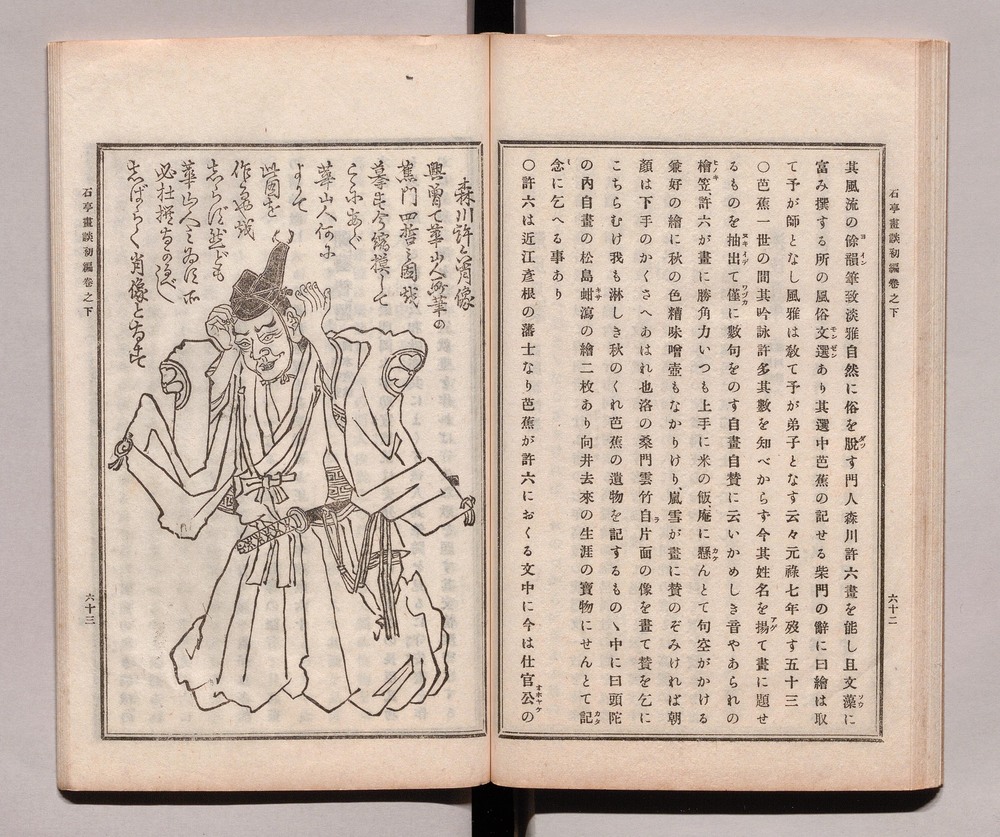 石亭畫談初編卷之下
六十二
其風流の餘韻筆致淡雅自然に俗を脫す門人森川許六畫を能し且文藻に
富み撰する所の風俗文選あり其選中芭蕉の記せる柴門の辭に曰繪は取
て予が師となし風雅は敎て予が弟子となす云々元祿七年歿す五十三
〇芭蕉一世の間其吟詠許多其數を知べからす今其姓名を揚て畫に題せ
るものを抽出て僅に數句をのす自畫自賛に云いかめしき音やあられの
檜笠許六が畫に勝角力いつも上手に米の飯庵に懸んとて句空がかける
兼好の繪に秋の色糟味噌壺もなかりけり、嵐雪が畫に賛のぞみければ朝
顏は下手のかくさへあはれ也洛の桑門雲竹自片面の像を畫て賛を乞に
こちらむけ我も淋しき秋のくれ芭蕉の遺物を記するものゝ中に曰頭陀
の內自畫の松島蚶瀉の繪二枚あり向井去來の生涯の寶物にせんとて記
念に乞へる事あり
〇許六は近江彥根の藩士なり芭蕉が許六におくる文中に今は仕官公の
森川許六肖像
興曾て華山人所筆の
蕉門四哲之圖哉
摹す今縮模して
こゝにあぐ
華山人何に
よりて
此圖を
作る哉
しらず然ども
華山人之爲す所
必杜撰なるべし
しばらく肖像となす
石亭畫談初編卷之下
六十三